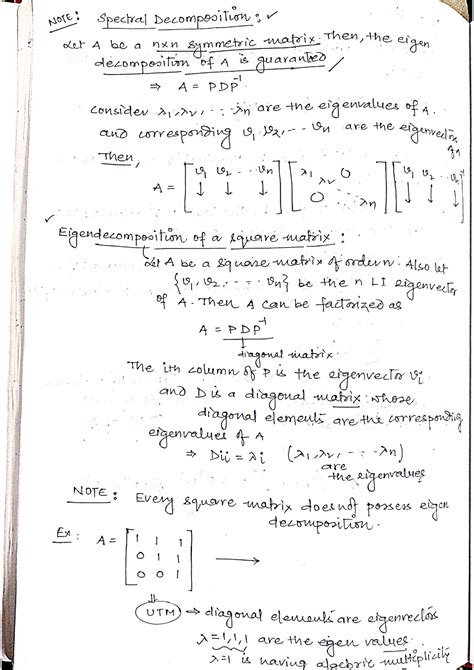 NOTE: Spectral Decomposition: ✓
Let A be a nxn symmetric matrix. Then, the eigen
decomposition of A is guaranteed
⇒ A = PDP⁻¹
consider λ₁, λ₂, ... λn are the eigenvalues of A.
and corresponding v₁ v₂, ... vn are the eigenvectors
Then,
A = [v₁ v₂ ... vn ↓ ↓ ↓] [λ₁ λ₂ ... λn 0 0] [v₁ v₂ ... vn ↓ ↓ ↓]⁻¹
✓ Eigendecomposition of a square matrix:
Let A be a square matrix of order n. Also let
{v₁, v₂, ... vn} be the n LI eigenvector
of A. Then A can be factorized as
A = PDP⁻¹
diagonal matrix.
The ith column of P is the eigenvector vi
and D is a diagonal matrix whose
diagonal elements are the corresponding
eigenvalues of A
⇒ Dii = λi (λ₁, λ₂, ... λn)
are
the eigenvalues
NOTE: Every square matrix does not possess eigen
decomposition.
Ex: A = [1 1 1
0 1 1
0 0 1] →
⇓
UTM ⇒ diagonal elements are eigenvectors
λ=1,1,1 are the eigen values.
λ=1 is having algebric multiplicity